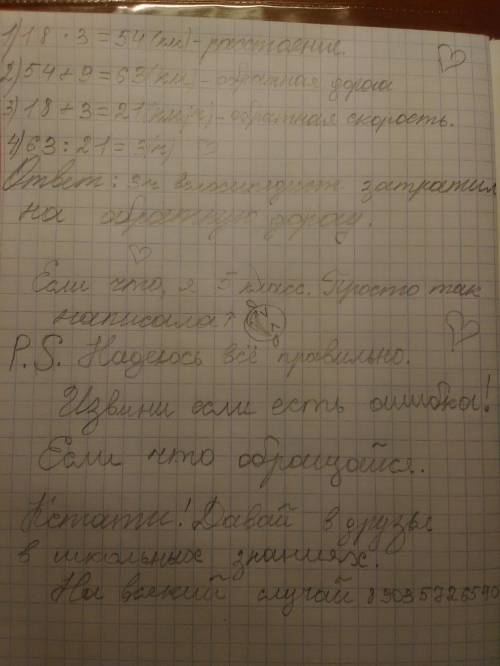 1) 18 · 3 = 54 (км) - расстояние.
2) 54 + 9 = 63 (км) - обратная дорога
3) 18 + 3 = 21 (км/ч) - обратная скорость.
4) 63 : 21 = 3 (ч)
Ответ: 3ч велосипедист затратил
на обратную дорогу.
Если что, я 5 класс. Просто так
написала
P.S. Надеюсь всё правильно.
Извини если есть ошибка!
Если что обращайся.
Кстати! Давай в друзья
в школьных знаниях.
На всякий случай 89035726590